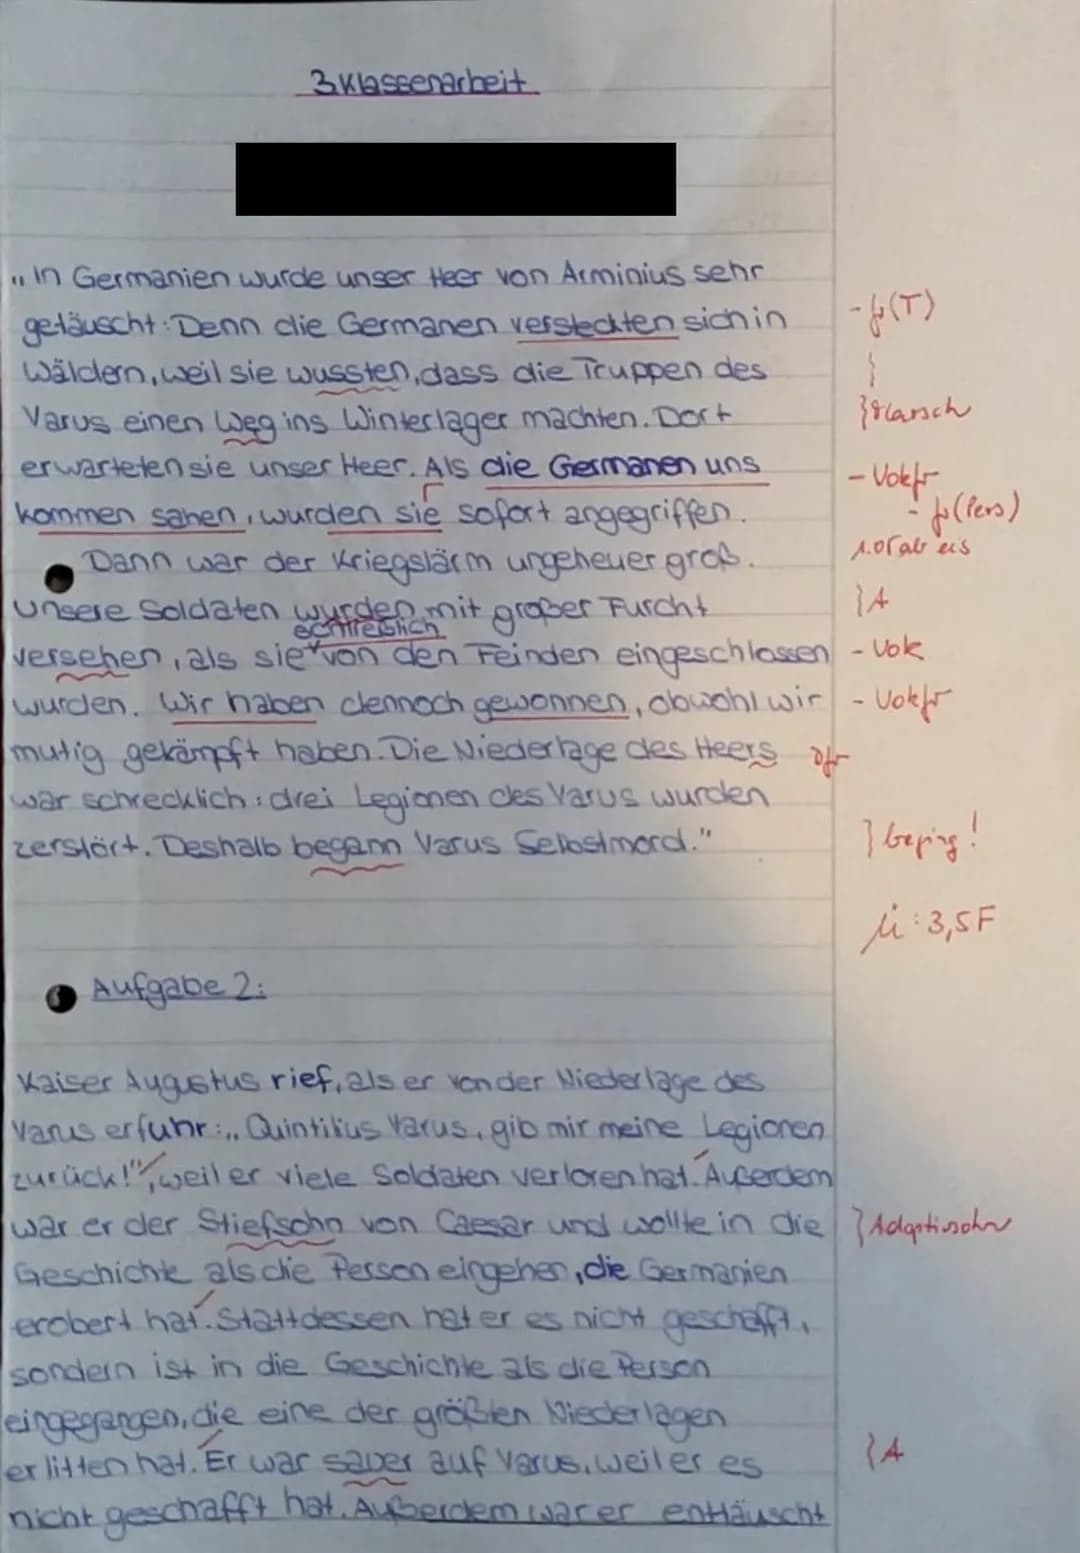 3.Klassenarbeit
„In Germanien wurde unser Heer von Arminius sehr
getäuscht: Denn die Germanen versteckten sich in
Wäldern, weil sie wussten, dass die Truppen des
Varus einen Weg ins Winterlager machten. Dort
erwarteten sie unser Heer. Als die Germanen uns
kommen sahen, wurden sie sofort angegriffen.
Dann war der Kriegslärm ungeheuer groß.
Unsere Soldaten wurden mit großer Furcht
versehen, als sie von den Feinden eingeschlossen
wurden. Wir haben dennoch gewonnen, obwohl wir
mutig gekämpft haben. Die Niederlage des Heers
war schrecklich: drei Legionen des Varus wurden
zerstört. Deshalb begann Varus Selbstmord."
Aufgabe 2:
Kaiser Augustus rief, als er von der Niederlage des
Varus erfuhr: „Quintilius Varus, gib mir meine Legionen
zurück!", weil er viele Soldaten verloren hat. Außerdem
war er der Stiefsohn von Caesar und wollte in die
Geschichte als die Person eingehen, die Germanien
erobert hat. Stattdessen hat er es nicht geschafft,
sondern ist in die Geschichte als die Person
eingegangen, die eine der größten Niederlagen
erlitten hat. Er war sauer auf Varus, weil er es
nicht geschafft hat. Außerdem war er enttäuscht
- f (T)
Marsch
- Vokf
- f (Pers)
} A
- Vok
- Vokf
} beging!
ü: 3,5F
} Adoptivsohn
} A